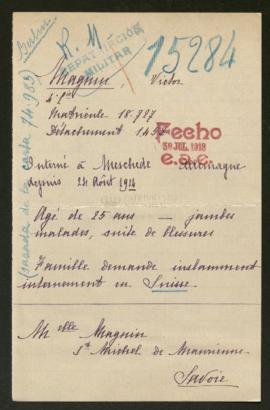 Berlin
R. M.
REPATRIACIÓN
MILITAR
15284
Magnin, Victor
4e
Matricule 18.727
Détachement 149
Fecho
30 JUL. 1918
e.s.e.
Interné à Meschede Allemagne
depuis 24 Août 1914
Agé de 25 ans — jambes
malades, suite de blessures
Famille demande instamment
internement en Suisse
Melle Magnin
St Michel de Maurienne
Savoie
(sacada de la carta 74.985)